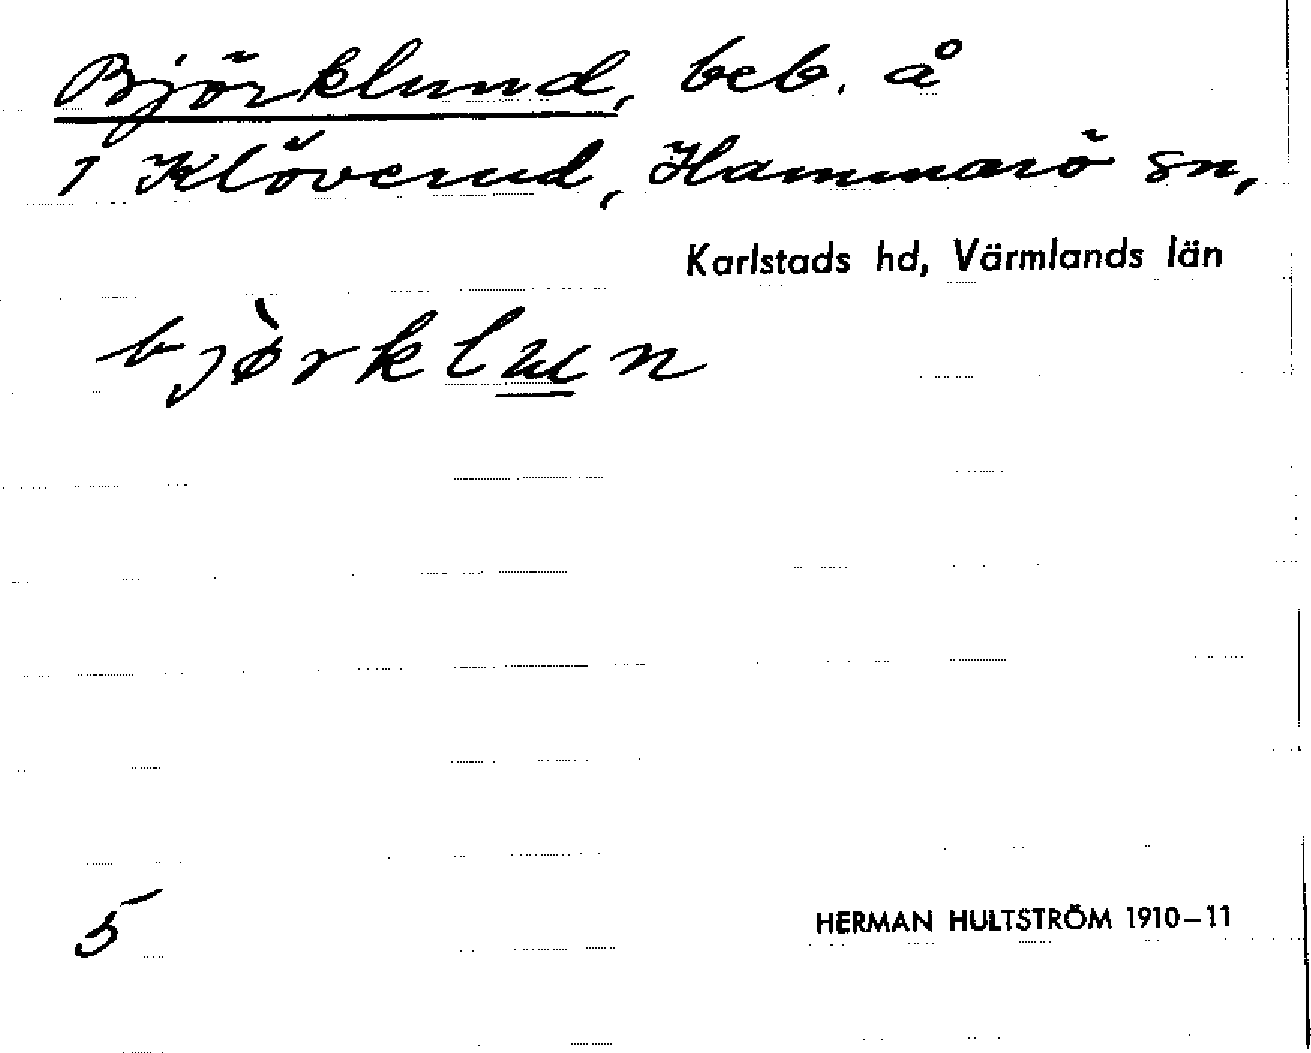 Björklund, beb. å
1 Klöverud, Hammarö sn,
Karlstads hd, Värmlands län
bjø̀rklun
5
HERMAN HULTSTRÖM 1910–11